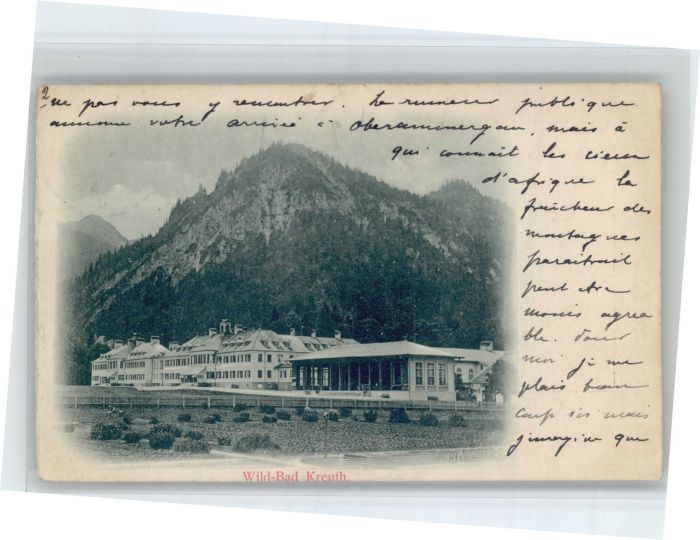 2
ne pas vous y rencontrer. La rumeur publique
annonce votre arrivée à Oberammergau, mais à
qui connait les cieux
d'afrique la
fraîcheur des
montagnes
paraitrait
peut être
moins agréa
ble. Pour
moi je me
plais beau
coup ici mais
j'imagine que
Wild-Bad Kreuth.